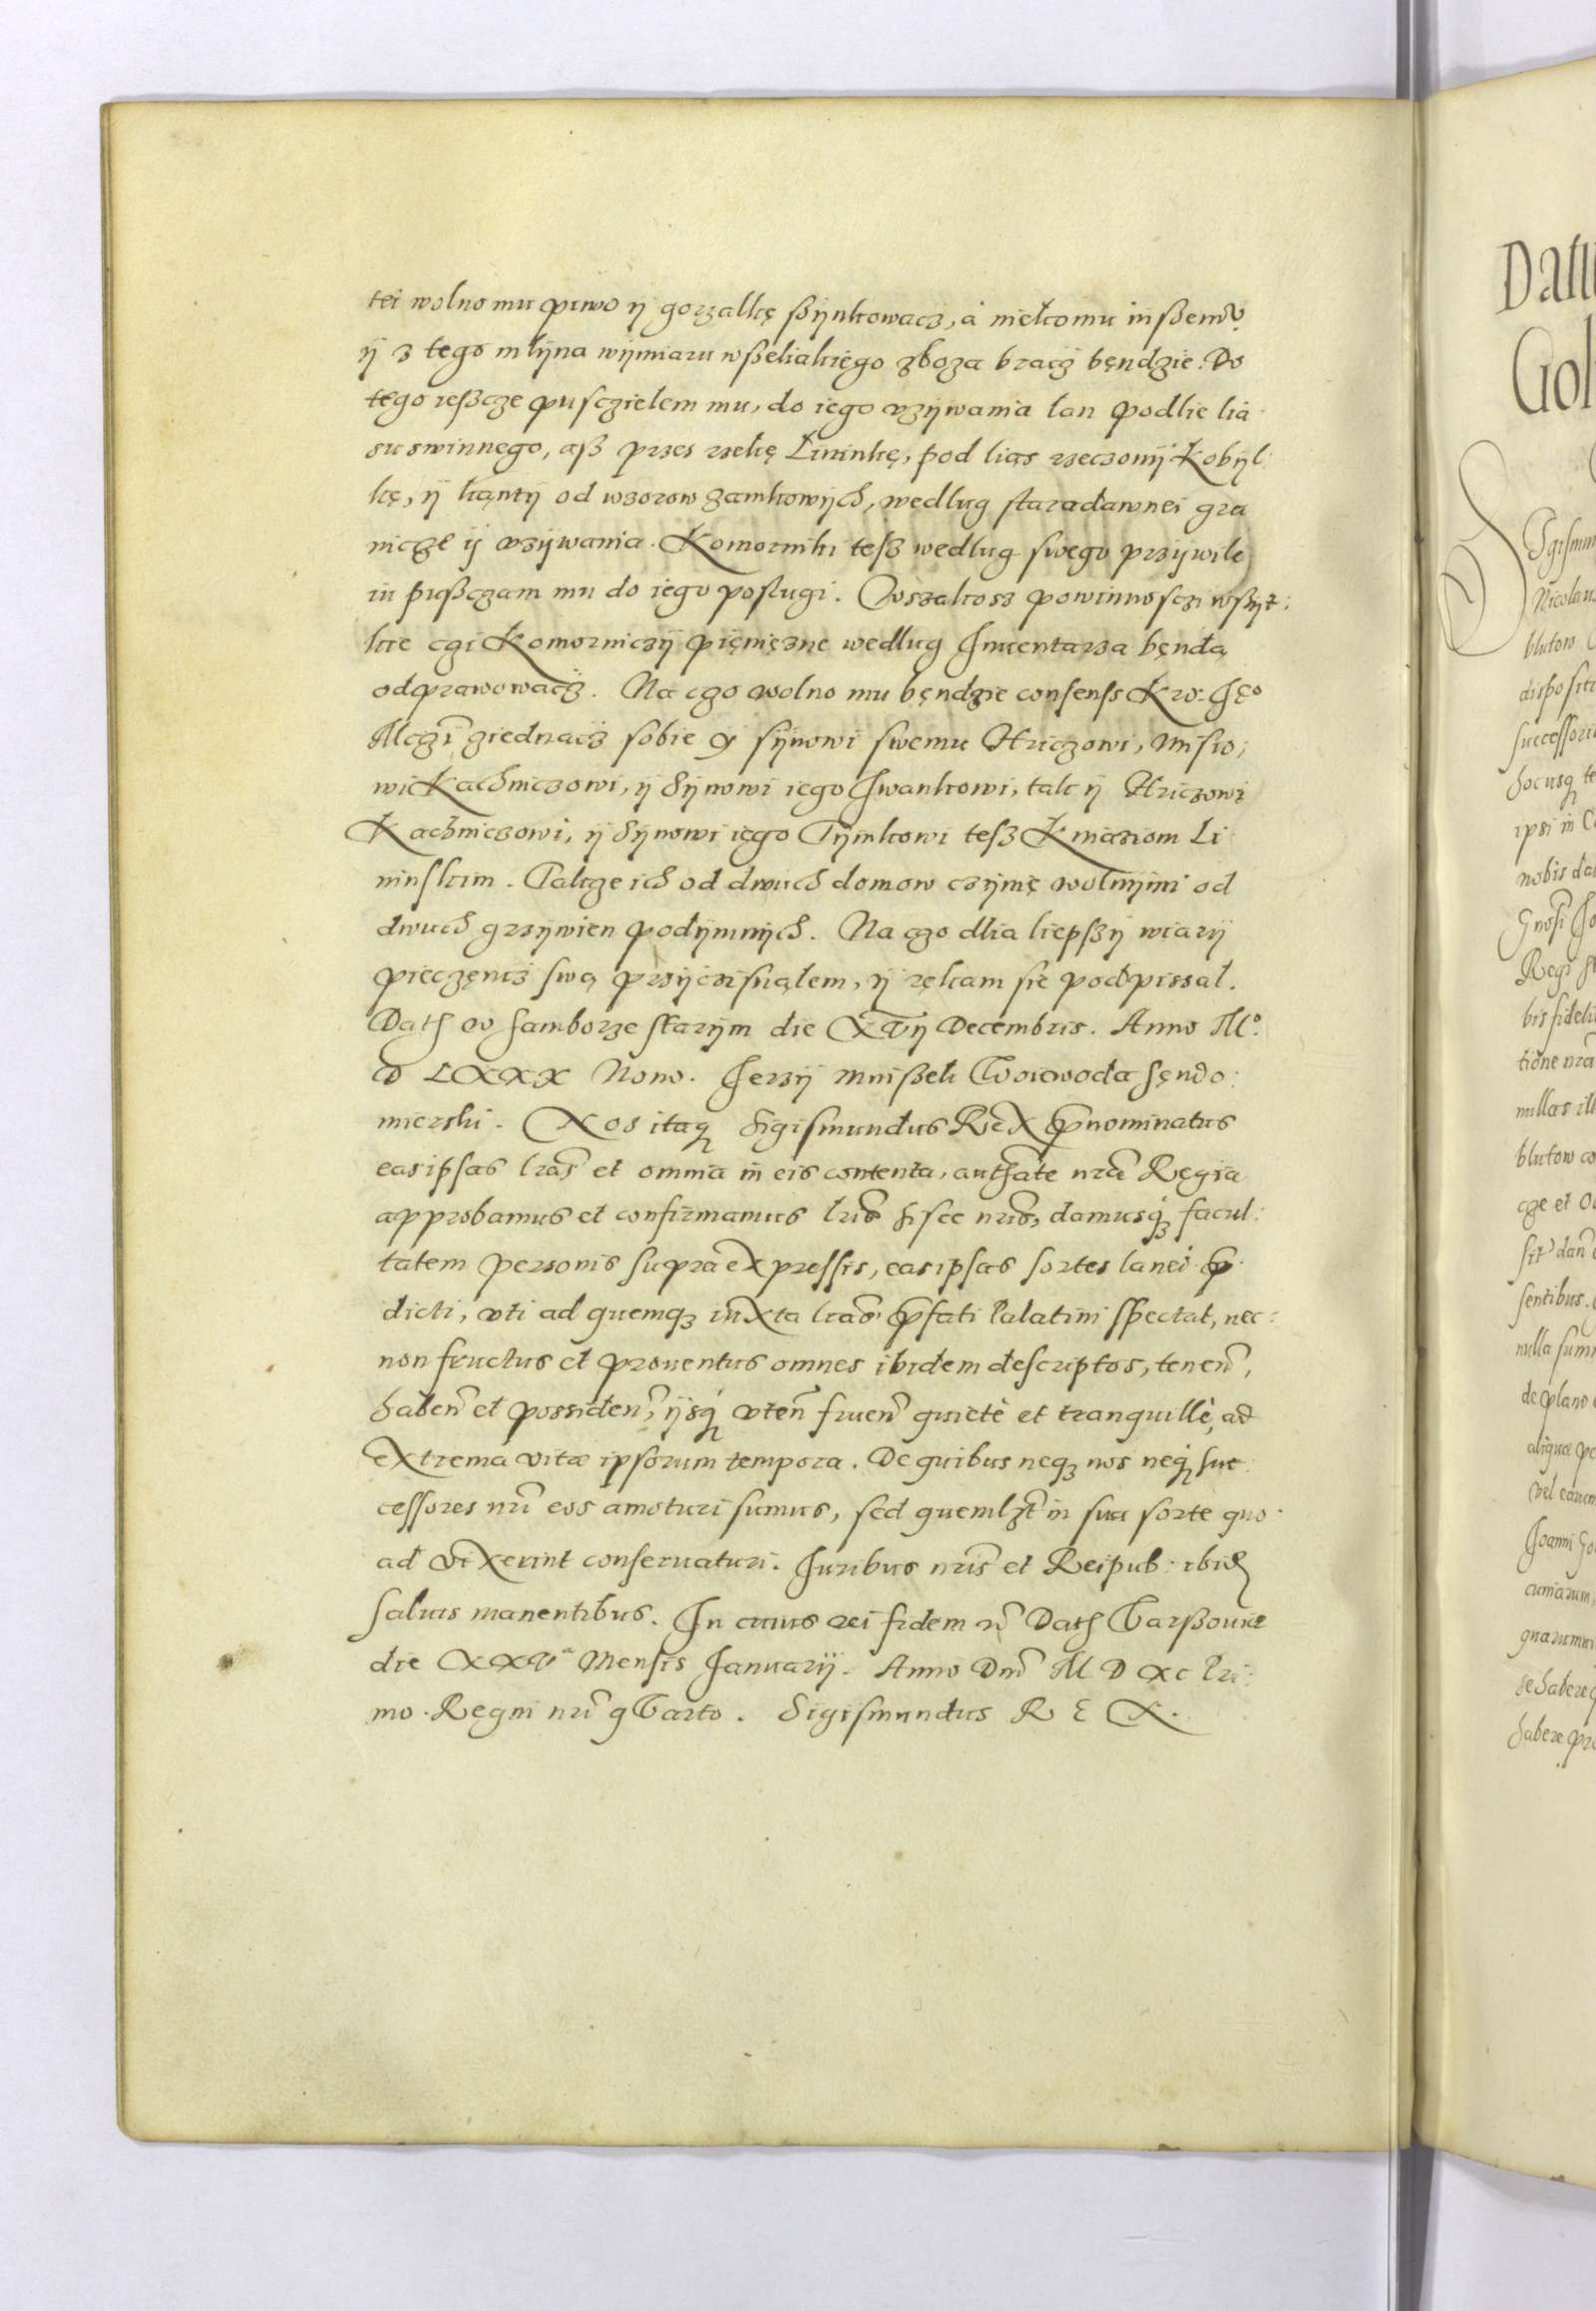 tei wolno mu piwo ÿ gorzalkę ßÿnkowacz, à niekomu inßemu
ÿ z tego mlÿna wÿmiaru wßeliakiego zboza bracz bęndzie. Do
tego ieszcze pusczielem mu, do iego vzÿwania lan podlie lia
su swinnego, aß przes rzekę Lininkę, pod lias rzeczonÿ Kobÿl
kę, ÿ kąntÿ od wzorow zamkowÿch, wedlug staradawnei gra
nicze ÿ vzÿwania. Komorniki tesz wedlug swego przÿwile
iu pußczam mu do iego poslugi. Wszakosz powinnosczi wßÿt:
kie czi Komorniczÿ pięnięzne wedlug Inuentarza bęnda
odprawowacz. Na czo wolno mu bęndzie consenss Kro: Ję°
Mczi ziednacz sobie y sÿnowi swemu Hriczowi, Misio;
wi Kachniczowi, ÿ Sÿnowi iego Iwankowi, tak ÿ Hriczowi
Kachniczowi, ÿ Sÿnowi iego Tÿmkowi tesz Kniaziom Li
ninskim. Takze ich od dwuch domow czÿnię wolnÿmi od
dwuch grzÿwien podÿmnÿch. Na czo dlia liepszÿ wiarÿ
pieczęncz swą przÿczisnąlem, ÿ ręką sie podpissal.
Dath w Samborze starÿm die XVij Decembris. Anno M°.
D LXXX Nono. Jerzÿ Mnißek Woiewoda Sęndo:
mierski. Nos itaq Sigismundus Rex pnominatus
eas ipsas lras et omnia in eis contenta, authate nra Regia
approbamus et confirmamus lris hisce nris, damusq facul:
tatem personis supra expressis, eas ipsas sortes lanei p
dicti, vti ad quemq iuxta lras pfati Palatini spectat, nec:
non fructus et prouentus omnes ibidem descriptos, tenen,
haben et possiden, ijsq vten fruen quietè et tranquillè, ad
extrema vitæ ipsorum tempora. De quibus neq nos neq suc
cessores nri eos amoturi sumus, sed quemlzt in sua sorte quo
ad vixerint conseruaturi. Juribus nris et Reipub: ibid
saluis manentibus. In cuius rei fidem Dath Varßouiæ
die XXV Mensis Januarij. Anno Dni M D XC Pri
mo. Regni nri qVarto. Sigismundus R E X.
Datu
Gol
Sigismun
Nicolau
blutow
disposit
successori
hocusq te
ipsi in C
nobis da
Gnosi Jo
bis fideli
tione nra
nullas ill
blutow co
cze et
sit dan
sentibus.
nulla sum
de plano
aliqua pe
vel eaun
Joanni
cumarum,
se habere
habere pr